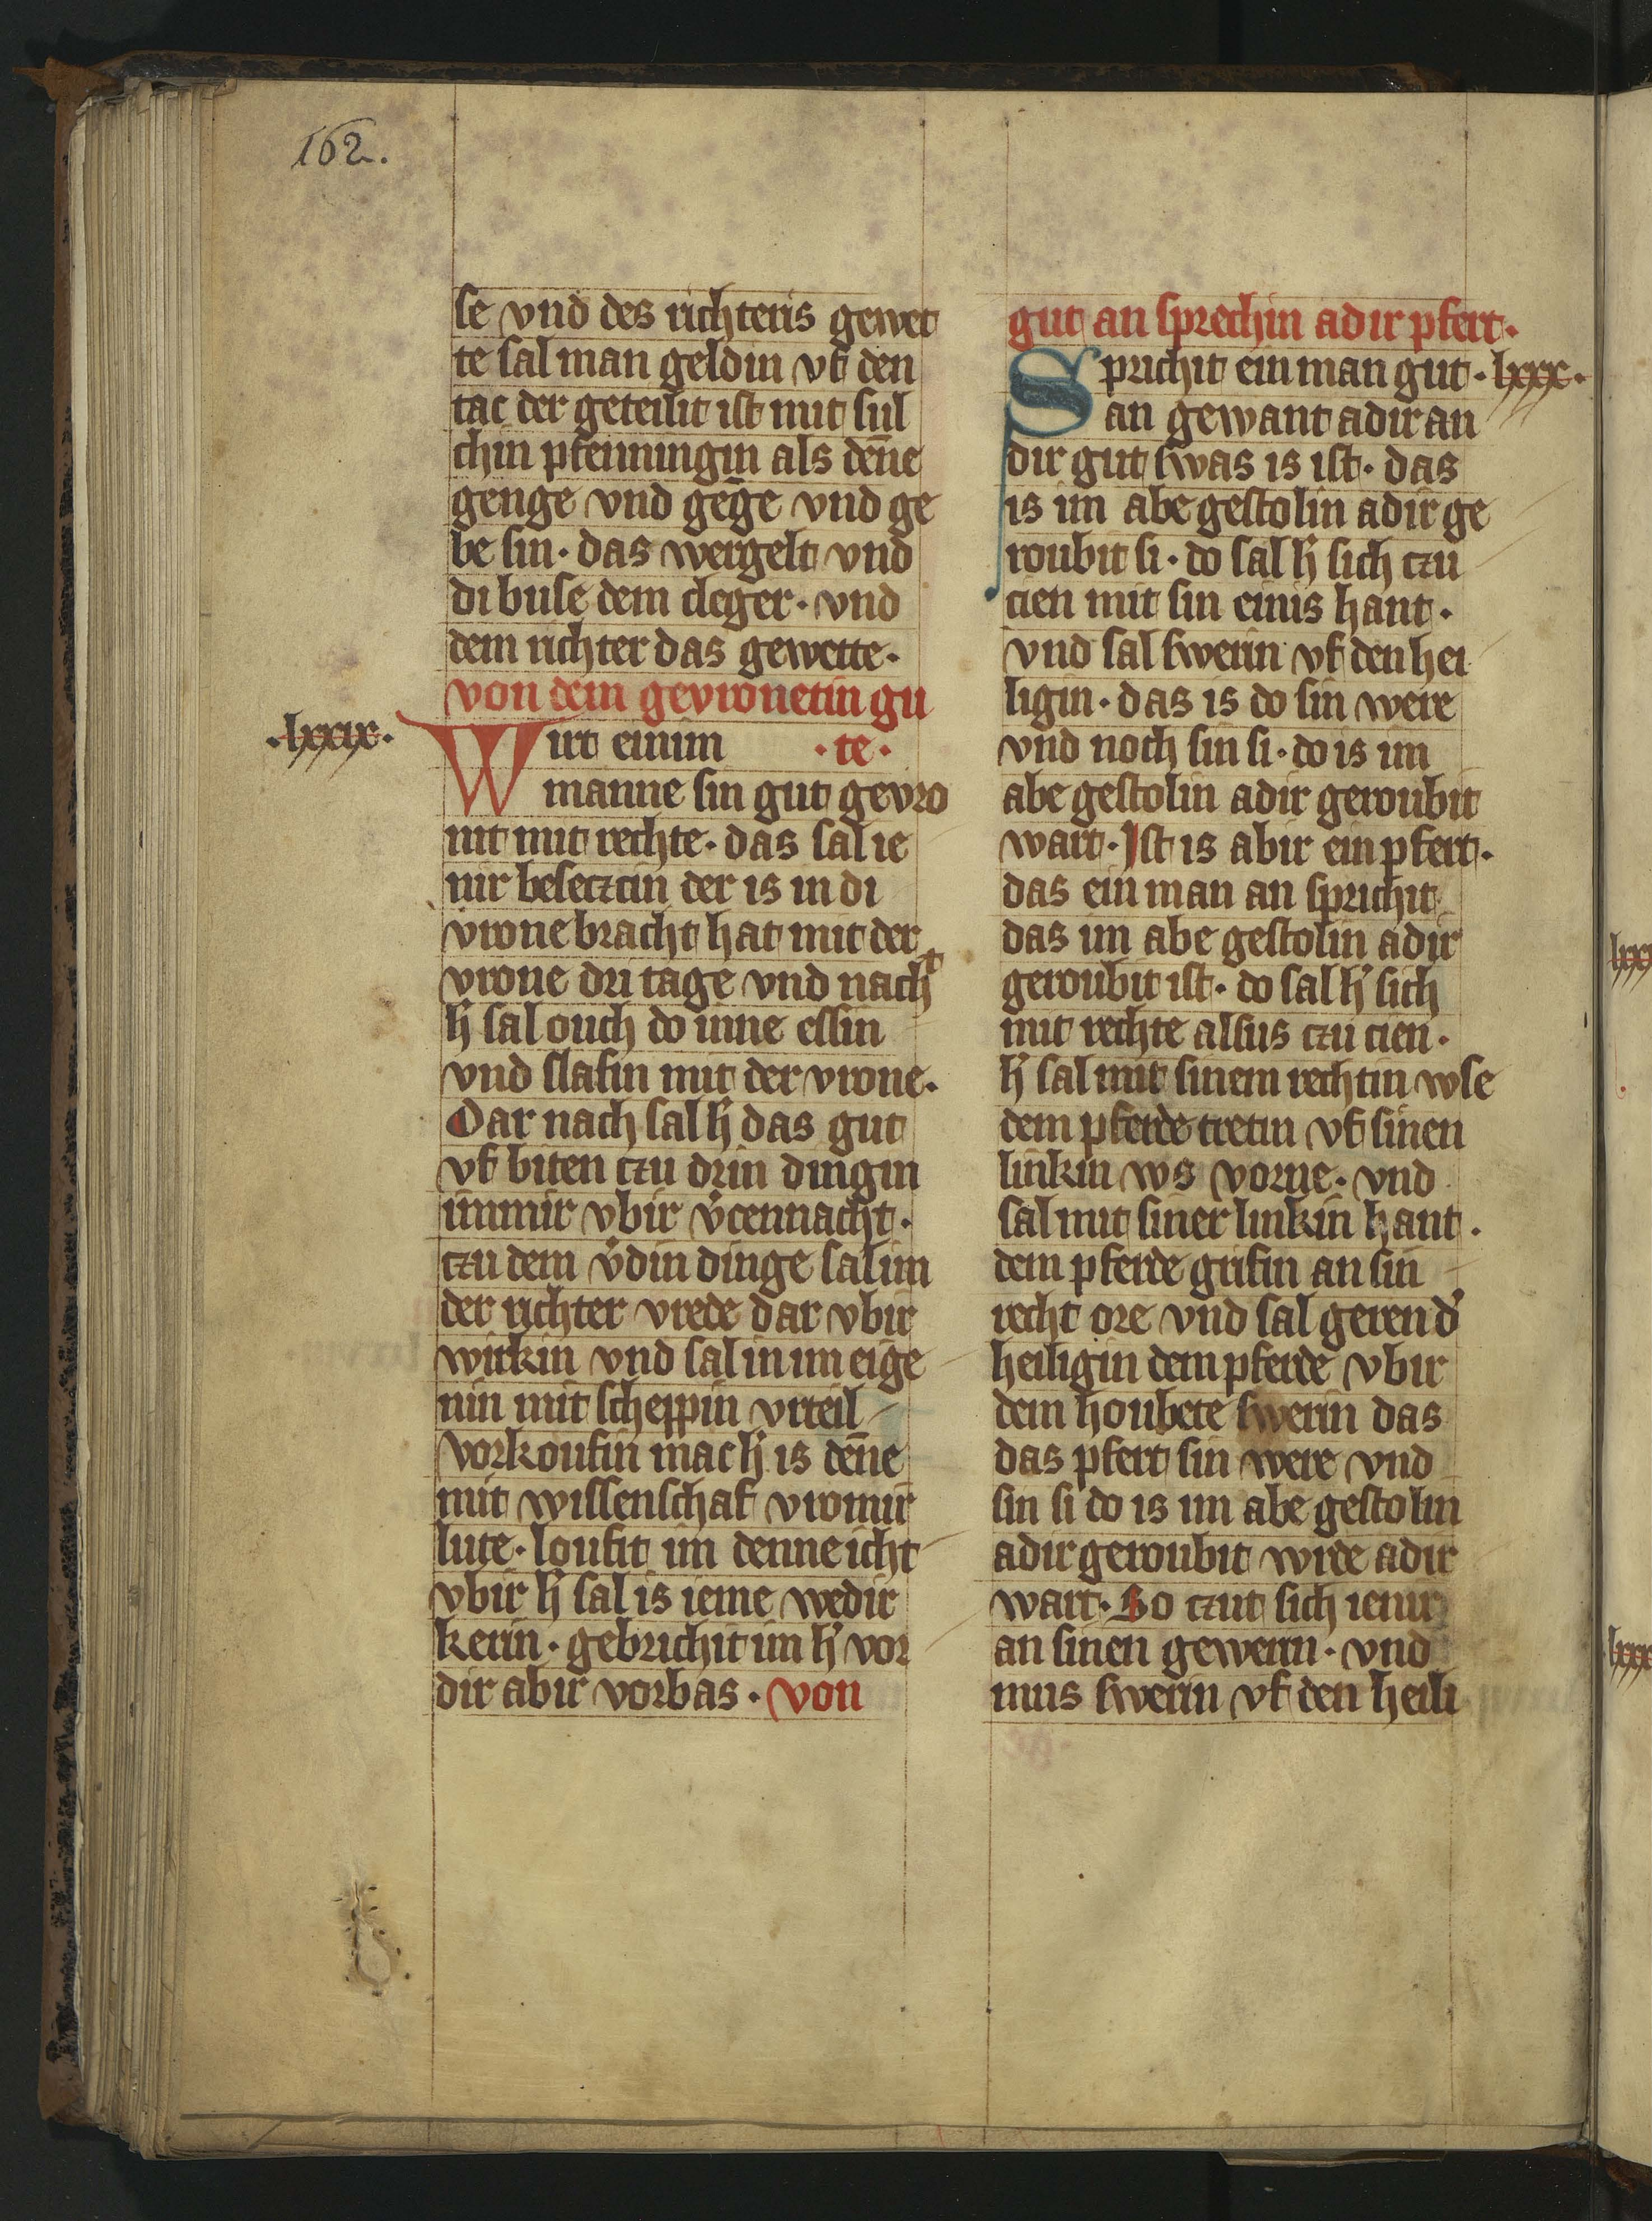 162.
se vnd des richteris gewet
te sal man geldin vf den
tac der geteilit ist mit sul
chin pfenningin als den̄e
genge vnd geḡe vnd ge
be sin · das wergelt vnd
di buse dem cleger · vnd
dem richter das gewette ·
von dem gevronetin gu
· te ·
· lxxix ·
Wirt einim
manne sin gut gevro
nit mit rechte · das sal ie
nir besectzcin der is in di
vrone bracht hat mit der
vrone dri tage vnd nacht
h̓ sal ouch do inne essin
vnd slafin mit der vrone ·
Dar nach sal h̓ das gut
vf biten czu drin dingin
immir vbir v̓cennacht ·
czu dem v̓din dinge sal im
der richter vrede dar vbir
wirkin vnd sal in im eige
nin mit scheppin vrteil
vorkoufin mac h̓ is den̄e
mit wissenschaf vromir
lute · loufit im denne icht
vbir h̓ sal is ieme wedir
kerin · gebrichit im h̓ vor
dir abir vorbas · von
gut an sprechin adir pfert ·
Sprichit ein man gut · lxxx ·
an gewant adir an
dir gut swas is ist · das
is im abe gestolin adir ge
roubit si · do sal h̓ sich czu
cien mit sin einis hant ·
vnd sal swerin vf den hei
ligin · das is do sin were
vnd noch sin si · do is im
abe gestolin adir geroubit
wart · Ist is abir ein pfert ·
das ein man an sprichit
das im abe gestolin adir
geroubit ist · do sal h̓ sich
mit rechte alsus czu cien ·
h̓ sal mit sinem rechtin wse
dem pferde tretin vf sinen
linkin ws vorne · vnd
sal mit siner linkin hant ·
dem pferde grifin an sin
recht ore vnd sal geren d̓
heiligin dem pferde vbir
dem houbete swerin das
das pfert sin were vnd
sin si do is im abe gestolin
adir geroubit wrde adir
wart · So czut sich ienir
an sinen gewerin · vnd
mus swerin vf den heili